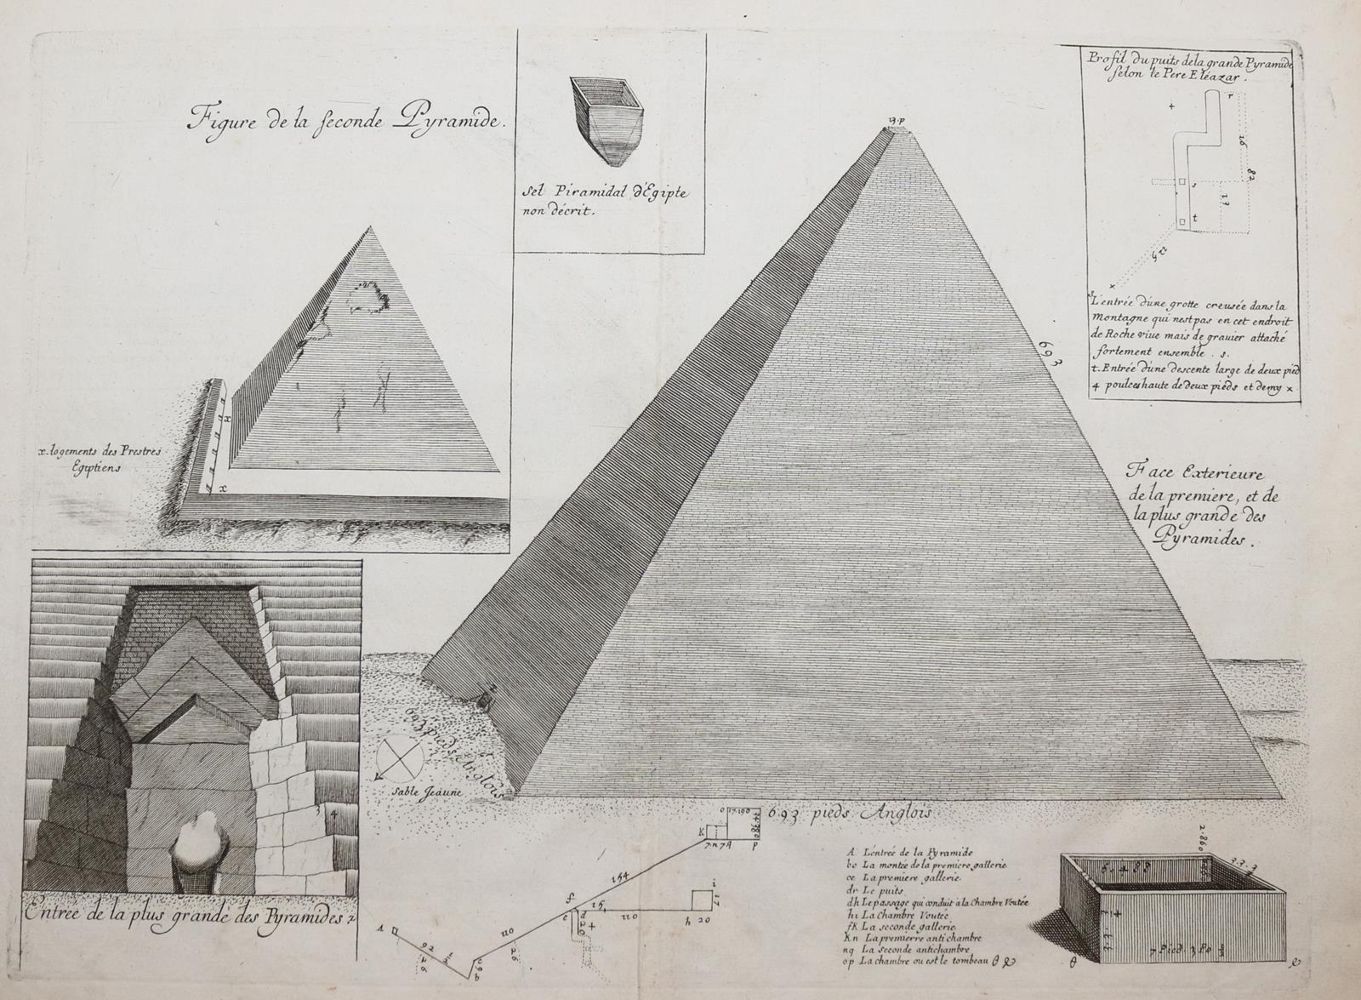 Figure de la seconde Pyramide.
Sel Piramidal d'Egipte
non décrit.
Profil du puits de la grande Pyramide
selon le Pere Eleazar.
r
s
t
x
L'entrée d'une grotte creusée dans la
montagne qui n'est pas en cet endroit
de Roche vive mais de gravier attaché
fortement ensemble. s.
t. Entrée d'une descente large de deux pied
4 poulces haute de deux pieds et demy x
x. logements des Prestres
Egiptiens
Face Exterieure
de la premiere, et de
la plus grande des
Pyramides.
693
693 pieds Anglois
Sable Jeaune
693 pieds Anglois
Entrée de la plus grande des Pyramides
A L'entrée de la Pyramide
bc La montée de la premiere gallerie
ce La premiere gallerie
dr Le puits
dh Le passage qui conduit a la Chambre Voutée
hi La Chambre Voutée
fK La seconde gallerie
Kn La premierre antichambre
nq La seconde antichambre
op La chambre ou est le tombeau
A
92
b
110
f
154
K
d
15
110
h
20
i
17
7 Pied. 3 Po ½